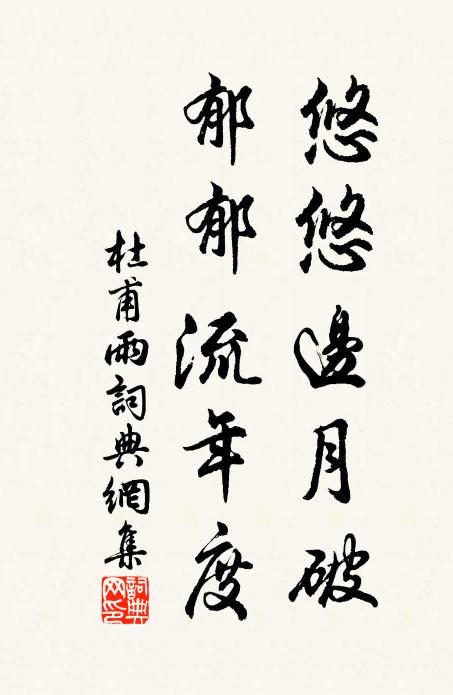 悠悠邊月破
郁郁流年度
杜甫雨詞典網集
詞典网印